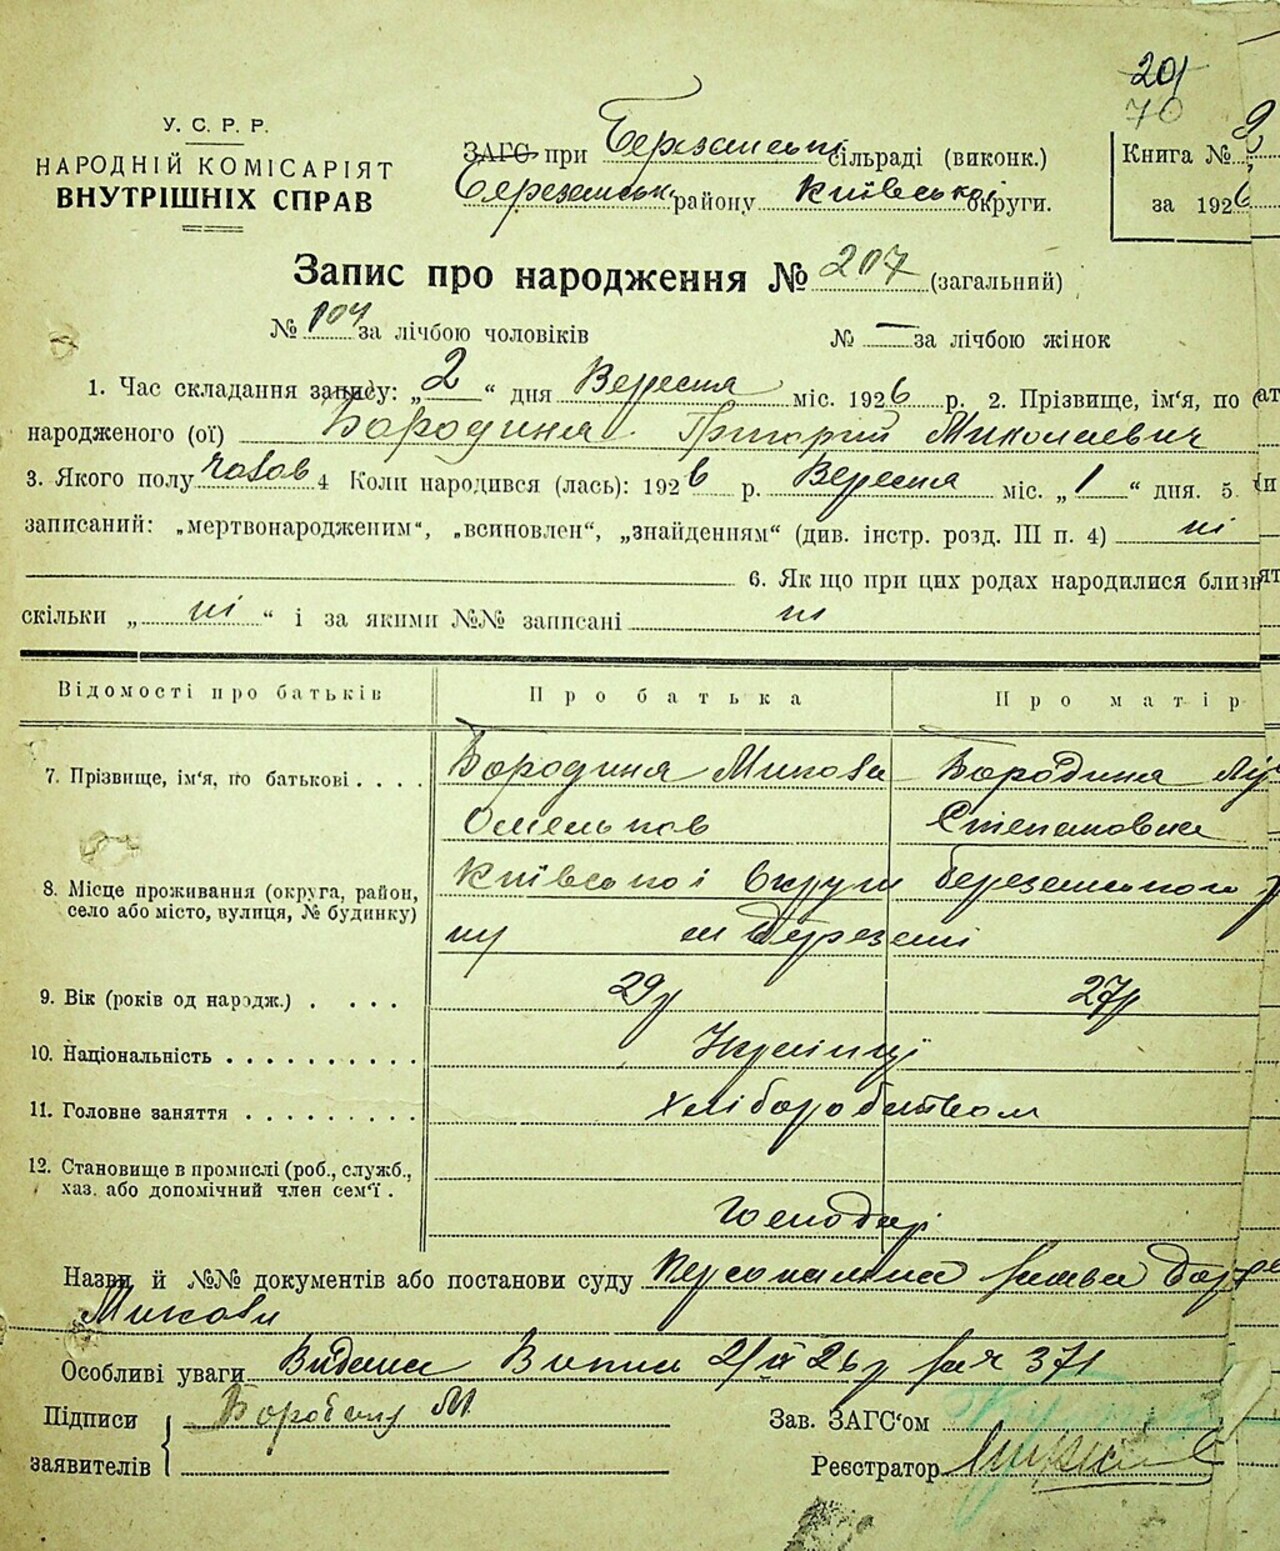 201
70
У. С. Р. Р.
НАРОДНІЙ КОМІСАРІЯТ
ВНУТРІШНІХ СПРАВ
ЗАГС при Березанській сільраді (виконк.)
Березанськ. району Київської округи.
Книга № 2
за 1926
Запис про народження № 207 (загальний)
№ 104 за лічбою чоловіків № — за лічбою жінок
1. Час складання запису: „2“ дня Вересня міс. 1926 р. 2. Прізвище, ім'я, по
народженого (ої) Бородиня Григорий Миколаевич
3. Якого полу чолов 4 Коли народився (лась): 1926 р. Вересня міс. „1“ дня. 5.
записаний: „мертвонародженим“, „всиновлен“, „знайденням“ (див. інстр. розд. III п. 4) ні
6. Як що при цих родах народилися близн
скільки „ні“ і за якими №№ записані ні
Відомості про батьків Про батька Про матір
7. Прізвище, ім'я, по батькові . . . . Бородиня Микола Бородиня
Омельков Степановна
8. Місце проживання (округа, район, Київської округи Березанського
село або місто, вулиця, № будинку) ну м Березані
9. Вік (років од народж.) . . . . 29р 27р
10. Національність . . . . . . . . . . Украінці
11. Головне заняття . . . . . . . . . Хліборобством
12. Становище в промислі (роб., служб.,
хаз. або допомічний член сем'ї . Господарі
Назви й №№ документів або постанови суду Персональна заява
Миколи
Особливі уваги Видана Випис 2/IX 26р за № 371
Підписи М
Зав. ЗАГС'ом
заявителів
Реєстратор